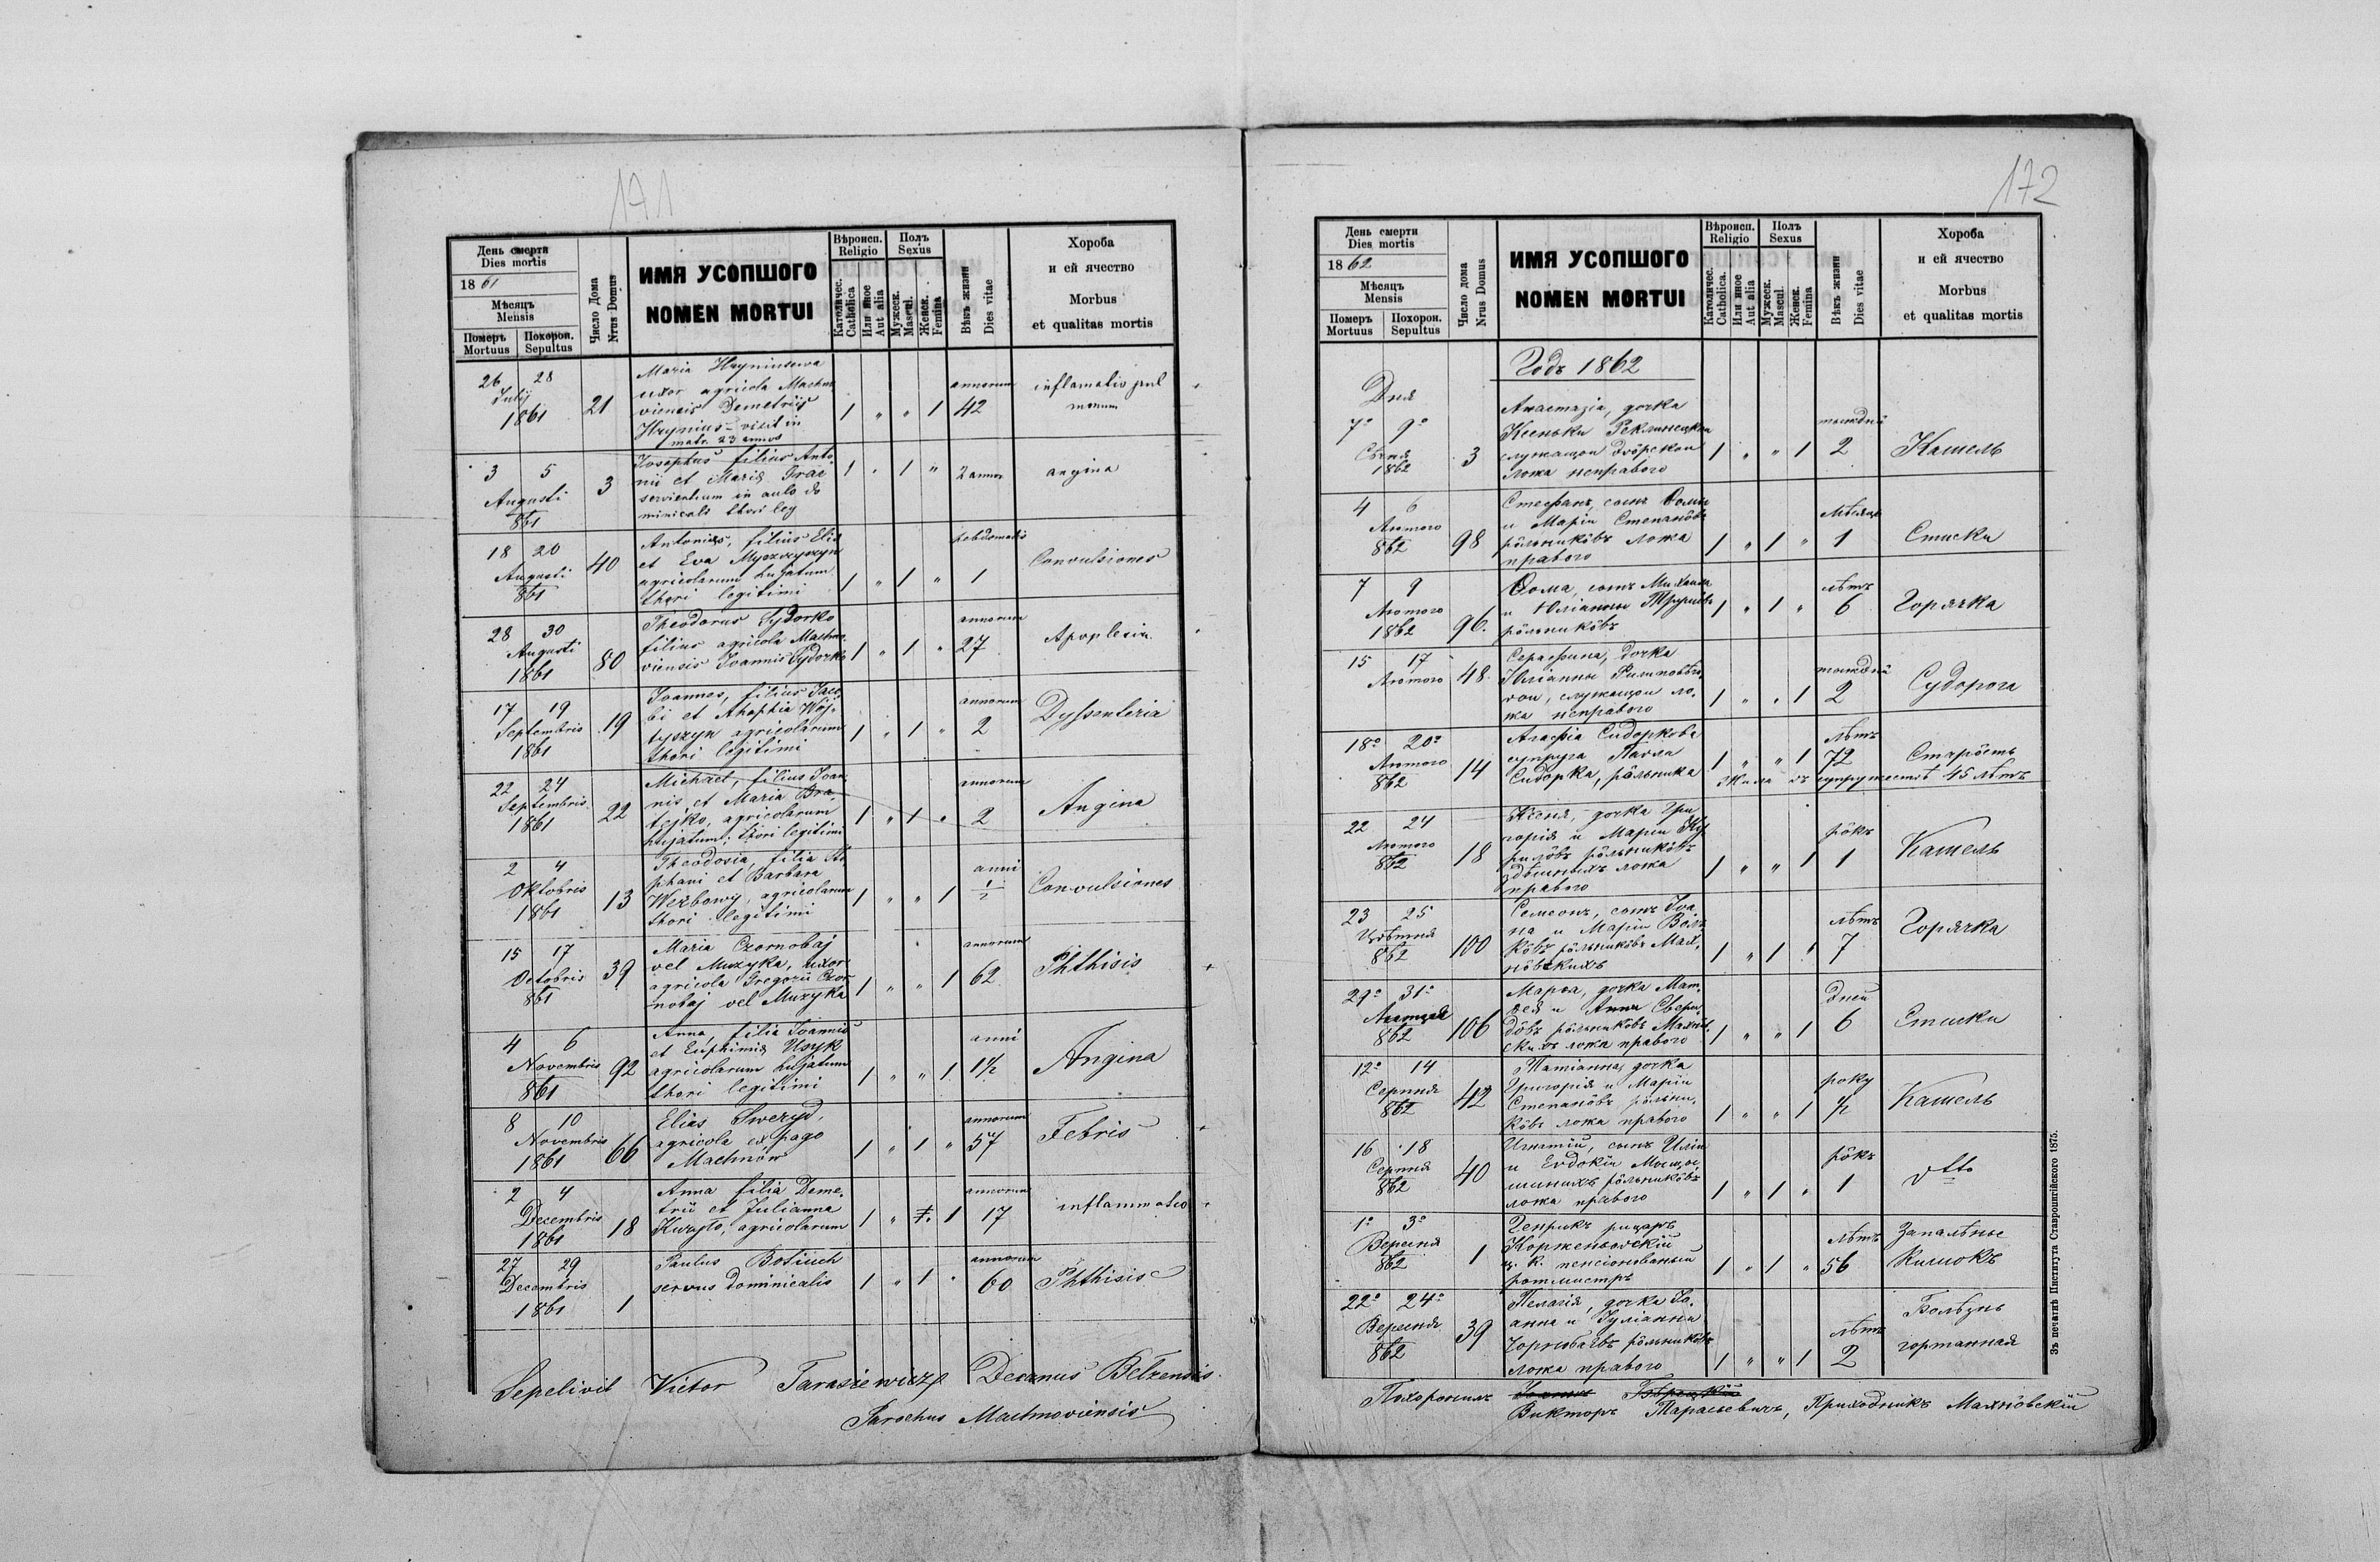 171
День смерти
Dies mortis
1861
Мѣсяцъ
Mensis
Померъ Mortuus
Похорон. Sepultus
Число Дома
Nrus Domus
ИМЯ УСОПШОГО
NOMEN MORTUI
Вѣроисп.
Religio
Католичес.
Catholica
Или иное
Aut alia
Полъ
Sexus
Мужеск.
Mascul.
Женск.
Femina
Вѣкъ жизни
Dies vitae
Хороба
и ей ячество
Morbus
et qualitas mortis
26 28
Julij
1861
21
Maria Hryniusowa
uxor agricola Machno
viensis Demetrij
Hrynius - vixit in
matr. 23 annos
1 " " 1
annorum
42
inflamatio pul
monum
3 5
Augusti
861
3
Josephus filius Anto-
nii et Maria
servientium in aulo do
minicali thori leg
1 " 1 "
2 annor
angina
18 20
Augusti
861
40
Antonius, filius Elia
et Eva Myszczyszyn
agricolarum hujatum
thori legitimi
1 " 1 "
hebdomadis
1
Convulsiones
28 30
Augusti
1861
80
Theodorus Sydorko
filius agricola Machno
viensis Joannis Sydorko
1 " 1 "
annorum
27
Apoplexia
17 19
Septembris
1861
19
Joannes, filius Jaco
bi et Ahaphia Woj-
tyszyn agricolarum
thori legitimi
1 " 1 "
annorum
2
Dyssenteria
22 24
Septembris
1861
22
Michael, filius Joan
nis et Maria Bra-
tejko, agricolarum
hujatum, thori legitimi
1 " 1 "
annorum
2
Angina
2 4
Oktobris
1861
13
Theodosia, filia Ste
phani et Barbara
Werbowy, agricolarum
thori legitimi
1 " " 1
anni
1/2
Convulsiones
15 17
Octobris
861
39
Maria Czornobaj
vel Muzyka, uxor
agricola Gregorii Czor
nobaj vel Muzyka
1 " " 1
annorum
62
Phthisis
4 6
Novembris
861
92
Anna, filia Joannis
et Euphimia Usyk
agricolarum hujatum
thori legitimi
1 " " 1
anni
1 1/2
Angina
8 10
Novembris
1861
66
Elias Sweryd
agricola ex pago
Machnów
1 " 1 "
annorum
57
Febris
2 4
Decembris
1861
18
Anna filia Deme-
trii et Julianna
agricolarum
1 " 1
annorum
17
inflammatio
27 29
Decembris
1861
1
Paulus Botiuch
servus dominicalis
1 " 1 "
annorum
60
Phthisis
Sepelivit Victor Tarasiewicz Decanus Belzensis
Parochus Machnoviensis
172
День смерти
Dies mortis
1862
Мѣсяцъ
Mensis
Померъ Mortuus
Похорон. Sepultus
Число дома
Nrus Domus
ИМЯ УСОПШОГО
NOMEN MORTUI
Вѣроисп.
Religio
Католичес.
Catholica.
Или иное
Aut alia
Полъ
Sexus
Мужеск.
Mascul.
Женск.
Femina
Вѣкъ жизни
Dies vitae
Хороба
и ей ячество
Morbus
et qualitas mortis
Годъ 1862
Дня
7º 9º
Сѣчня
1862
3
Анастазія, дочка
Ксеньки
служащои дворскои
ложа неправого
1 " " 1
тыждни
2
Кашель
4 6
Лютого
862
98
Стефанъ, сынъ Ѳомы
и Маріи Степанôвъ
рôльникôвъ ложа
правого
1 " 1 "
Мѣсяць
1
Стиски
7 9
Лютого
1862
96.
Ѳома, сынъ Михаила
и Юліанны
рôльникôвъ
1 " 1 "
лѣтъ
6
Горячка
15 17
Лютого
48
Серафина, дочка
Юліанны
служащои ло-
жа неправого
1 " " 1
тыждни
2
Судорога
18º 20º
Лютого
862
14
Агафія Сидоркова
супруга Павла
Сидорка, рôльника
1 " " 1
лѣтъ
72
Старôсть
Жила въ супружествѣ 45 лѣтъ
22 24
Лютого
862
18
Ксеня, дочка Гри
горія и Маріи Ку
рилôвъ рôльникôвъ
здѣшныхъ ложа
правого
1 " " 1
рôкъ
1
Кашель
23 25
Цвѣтня
862
100
Семеонъ, сынъ Іоа
на и Маріи
рôльникôвъ Мах-
нôвскихъ
1 " 1 "
лѣтъ
7
Горячка
29º 31º
862
106
Марья, дочка Мат-
вея и Анны Свери
дôвъ рôльникôвъ Махнôв
скихъ ложа правого
1 " " 1
дней
6
Стиски
12º 14
Серпня
862
42
Татіанна, дочка
Григорія и Маріи
Степанôвъ рôльни-
кôвъ ложа правого
1 " " 1
року
1/2
Кашель
16 18
Серпня
862
40
Игнатій, сынъ Иліи
и Евдокіи Мыщи
шиныхъ рôльникôвъ
ложа правого
1 " 1 "
рôкъ
1
dtto
1º 3º
Вересня
862
1
Генрикъ рицарь
Корженьовскій
ц. к. пенсіонованый
ротмистръ
1 " 1 "
лѣтъ
56
Запалѣнье
Кишокъ
22º 24º
Вересня
862
39
Пелагія, дочка Іо-
анна и Іуліанны
Чорнобаѣвъ рôльникôвъ
ложа правого
1 " " 1
лѣтъ
2
Болѣзнь
гортанная
Похоронилъ
Викторъ Тарасьевичъ, Приходникъ Махнôвскій
Зъ печатнѣ Института Ставропигійского 1875.